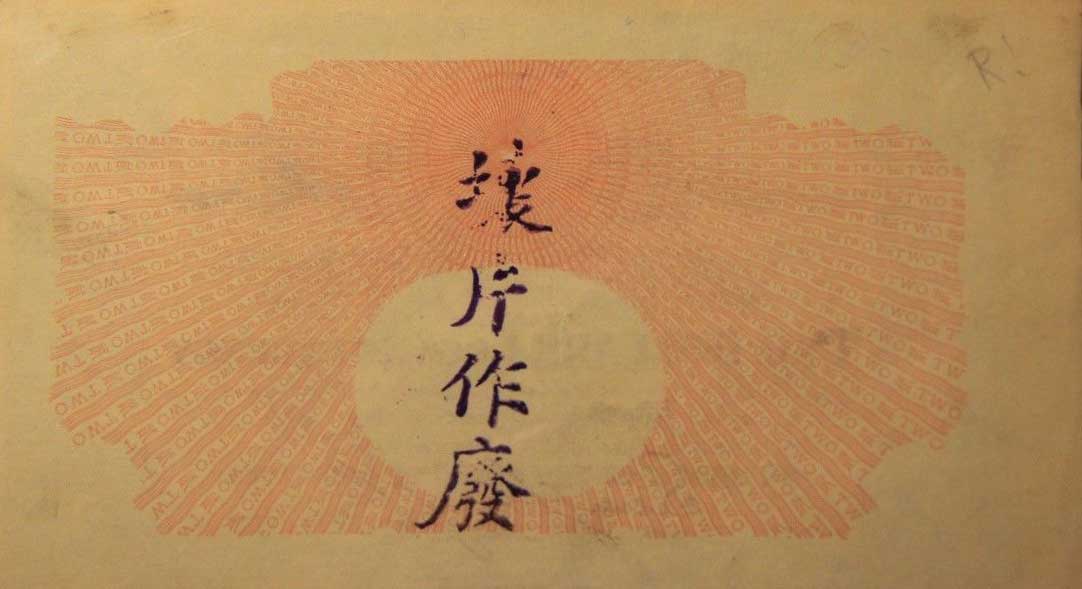 壞片作廢
R!
TWO